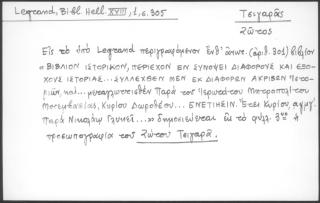 Legrand, Bibl. Hell. XVII, 1, σ. 305
Τσιγαρᾶς
Ζῶτος
Εἰς τὸ ὑπὸ Legrand περιγραφόμενον ἐνθ' ἀνωτ. (ἀριθ. 301) βιβλίον
«ΒΙΒΛΙΟΝ ΙΣΤΟΡΙΚΟΝ, ΠΕΡΙΕΧΟΝ ΕΝ ΣΥΝΟΨΕΙ ΔΙΑΦΟΡΟΥΣ ΚΑΙ ΕΞΟ-
ΧΟΥΣ ΙΣΤΟΡΙΑΣ... ΣΥΛΛΕΧΘΕΝ ΜΕΝ ΕΚ ΔΙΑΦΟΡΩΝ ΑΚΡΙΒΩΝ Ἱστο-
ριῶν, καὶ... μεταγλωττισθὲν Παρὰ τοῦ Ἱερωτάτου Μητροπολίτου
Μονεμβασίας, Κυρίου Δωροθέου... ΕΝΕΤΙΗΣΙΝ. Ἔτει Κυρίου, αχλζ
Παρὰ Νικολάῳ Γλυκεῖ...» δημοσιεύεται εἰς τὸ φύλλ. 3ον ἡ
προσωπογραφία τοῦ Ζώτου Τσιγαρᾶ.